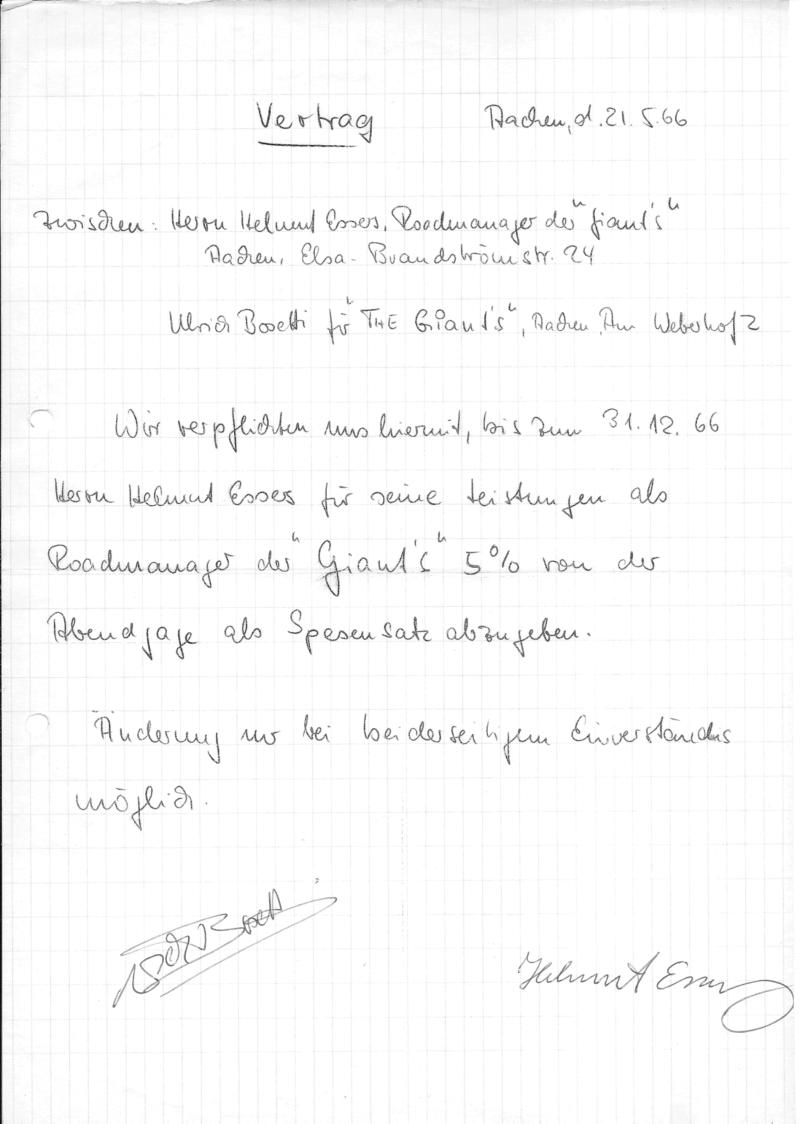 Vertrag
Aachen, d. 21.5.66
zwischen: Herrn Helmut Essers, Roadmanager der "Giant's"
Aachen, Elsa-Brandströmstr. 24
Ulrich Bosetti für "THE Giant's", Aachen, Am Weberhof 2
Wir verpflichten uns hiermit, bis zum 31.12.66
Herrn Helmut Essers für seine Leistungen als
Roadmanager der "Giant's" 5% von der
Abendgage als Spesensatz abzugeben.
Änderung nur bei beiderseitigem Einverständnis
möglich.
Bosetti
Helmut Essers